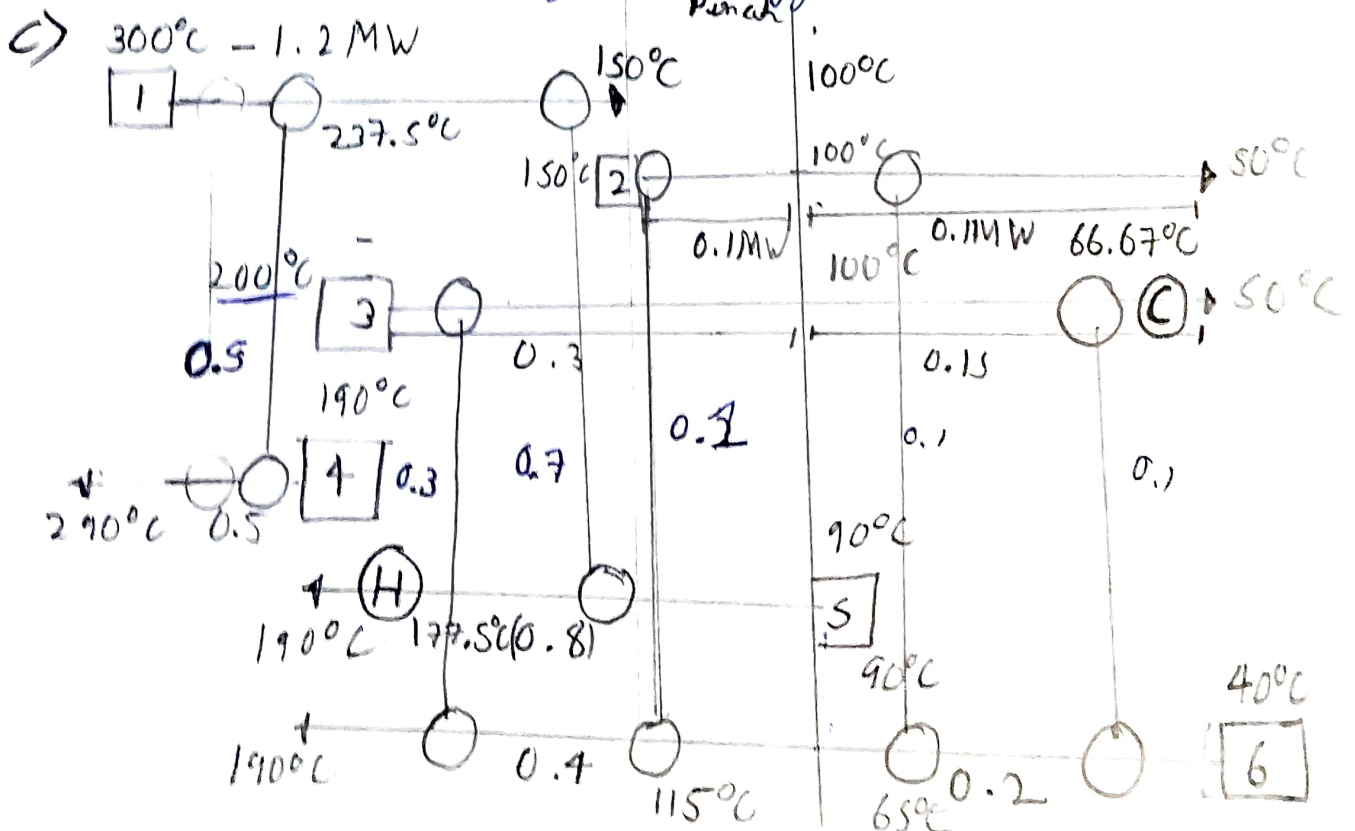 c) 300°C - 1.2 MW
1
237.5°C
150°C
100°C
150°C 2
100°C
50°C
0.1MW
0.1MW
66.67°C
200°C
3
100°C
C
50°C
0.3
0.15
0.5
190°C
4
0.3
0.7
0.1
0.1
0.1
290°C
0.5
90°C
H
5
190°C
177.5°C(0.8)
90°C
40°C
190°C
0.4
115°C
65°C
0.2
6